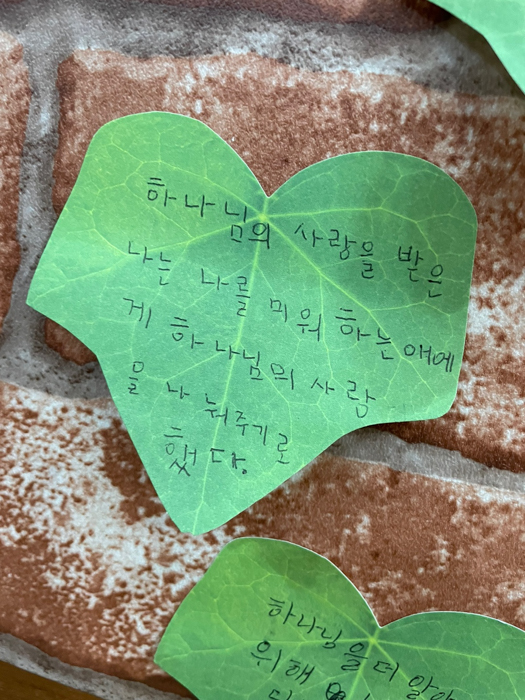 하나님의 사랑을 받은
나는 나를 미워 하는 애에
게 하나님의 사람
을 나눠주기로
했다.
하나님을 더 알아
위해